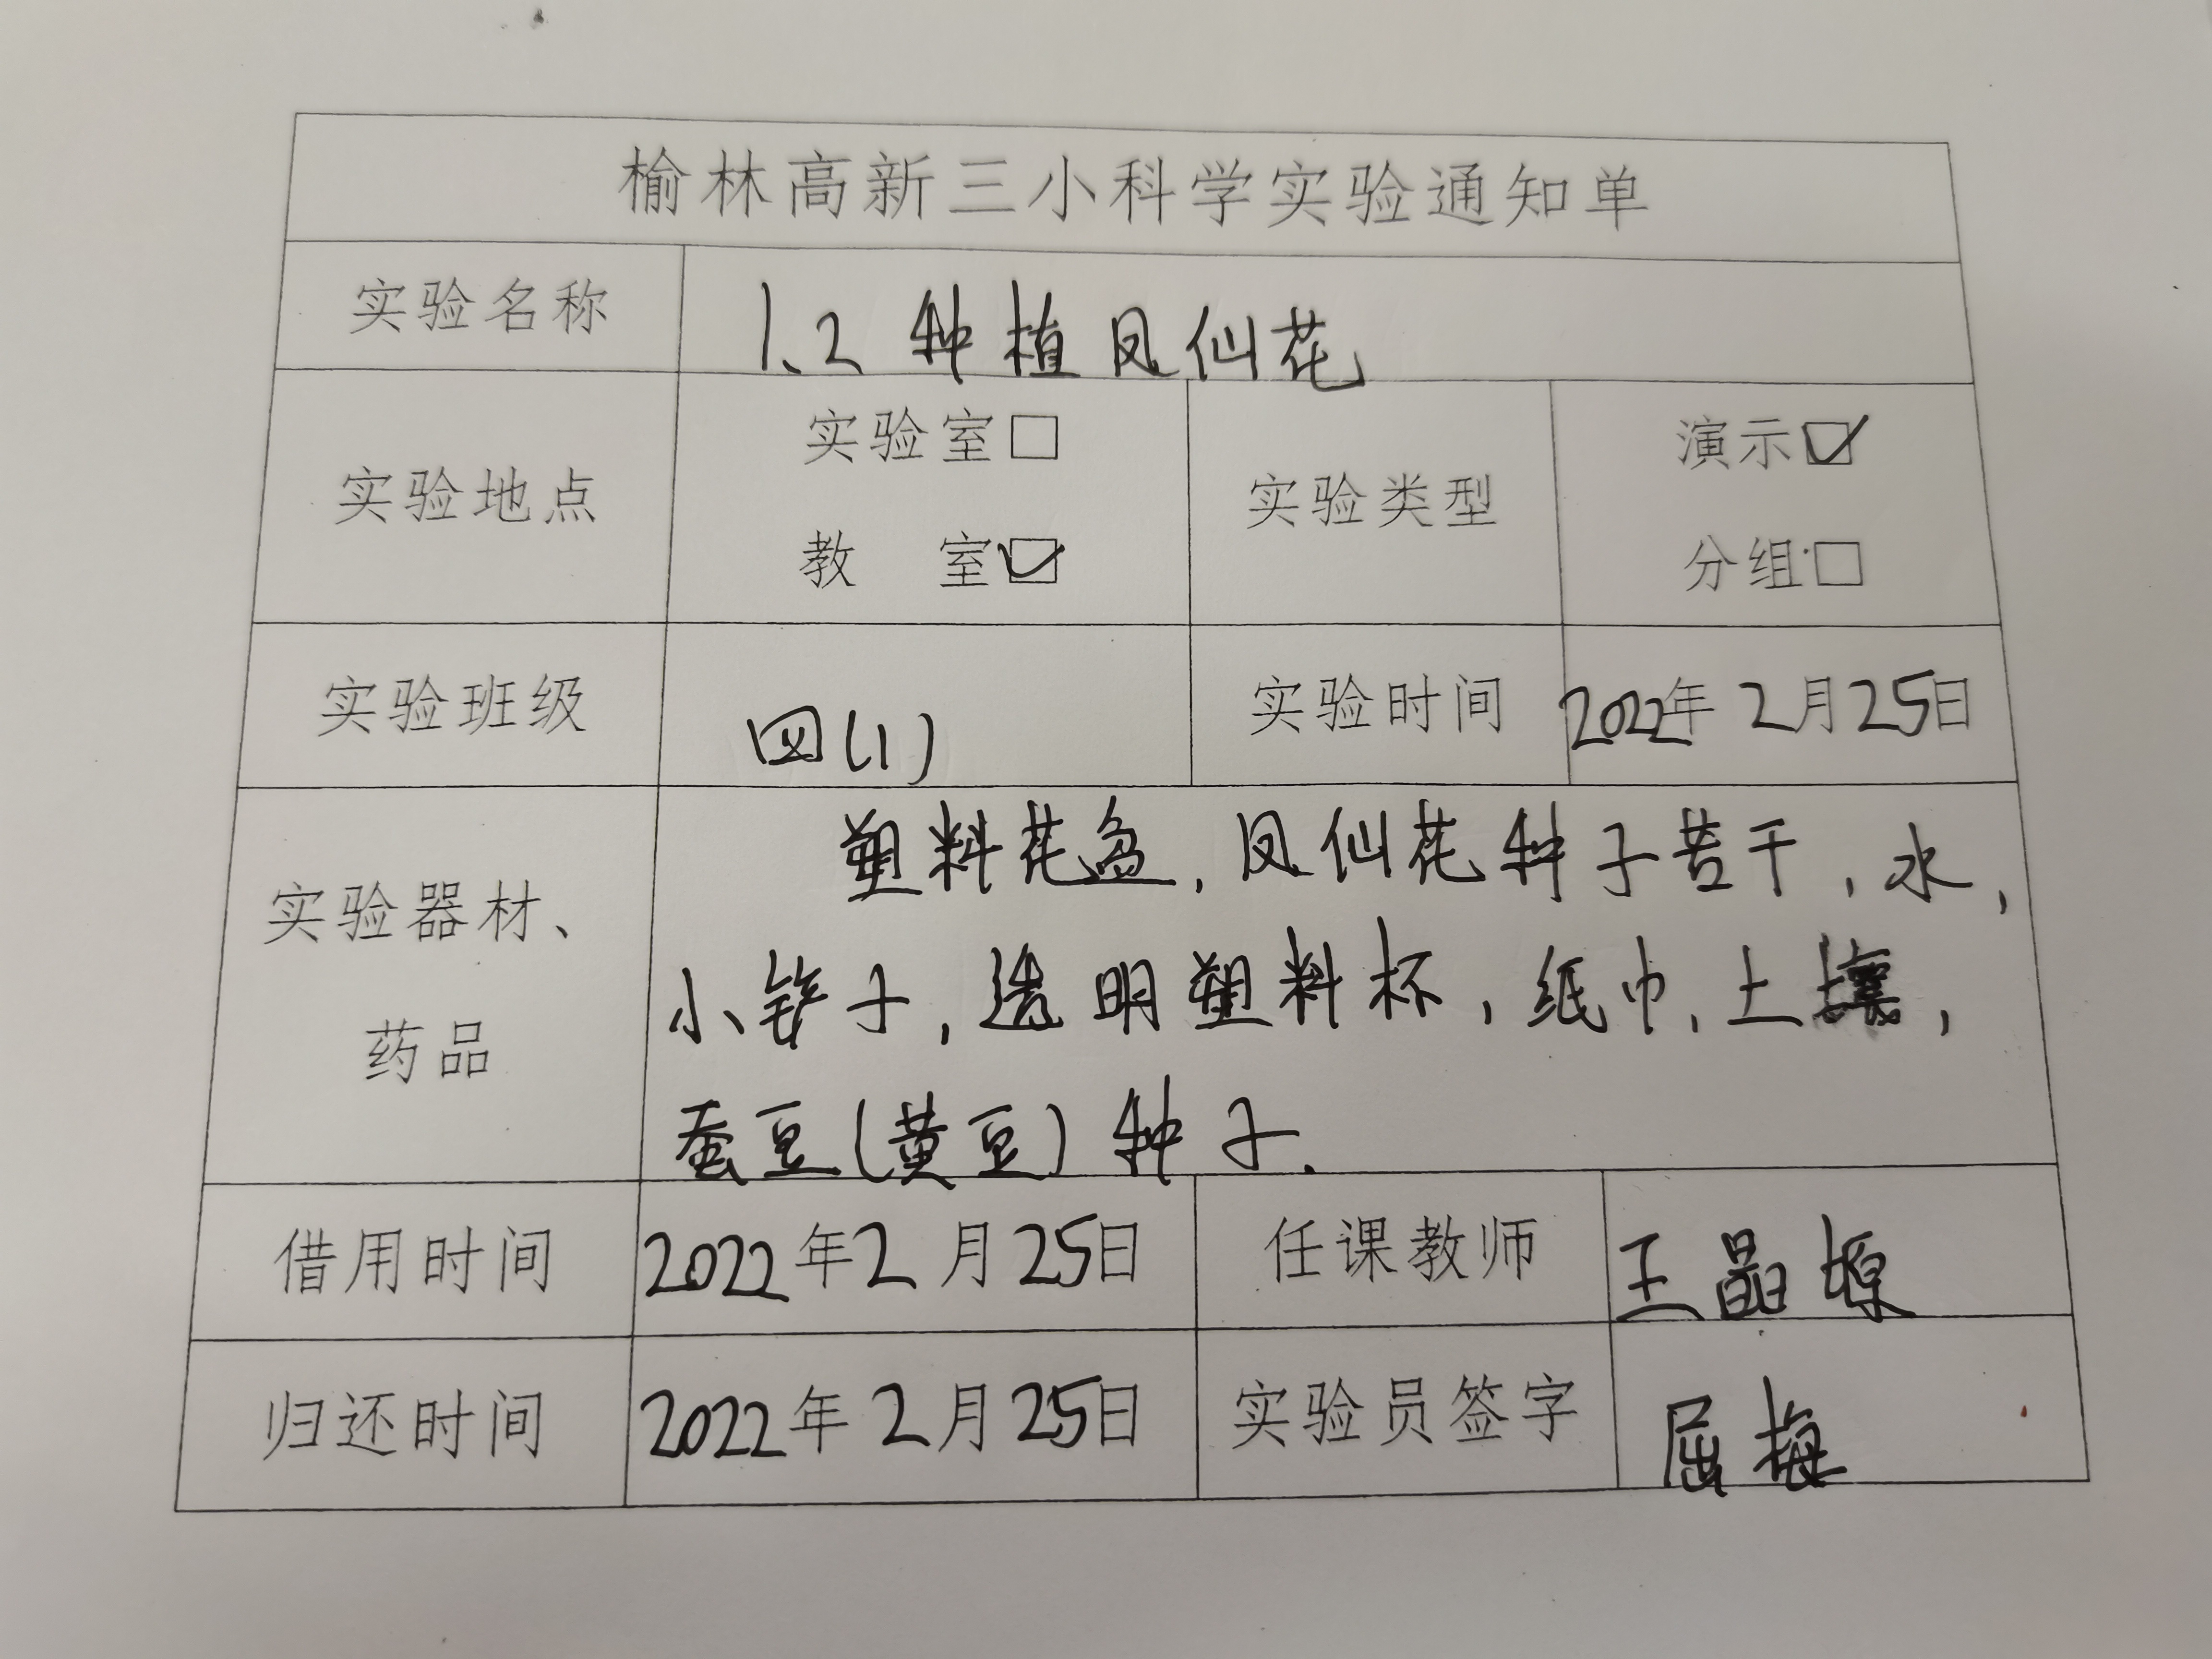 榆林高新三小科学实验通知单
实验名称 1.2 种植凤仙花
实验地点 实验室□ 教 室☑ 实验类型 演示☑ 分组□
实验班级 四(1) 实验时间 2022年2月25日
实验器材、药品
塑料花盆,凤仙花种子若干,水,
小铲子,透明塑料杯,纸巾,土壤,
蚕豆(黄豆)种子.
借用时间 2022年2月25日 任课教师 王晶塬
归还时间 2022年2月25日 实验员签字 屈梅